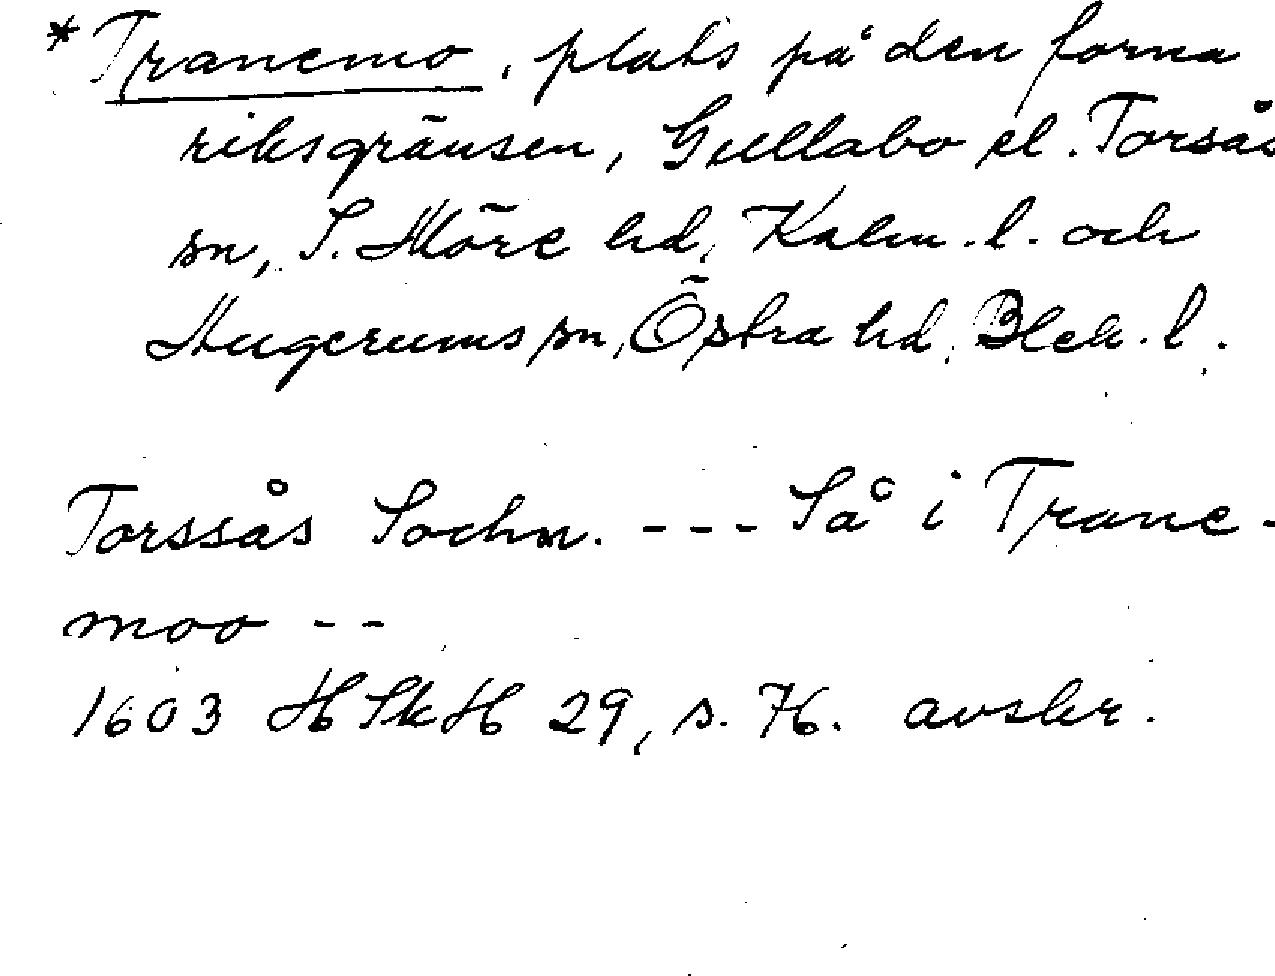 *Tranemo, plats på den forna
riksgränsen, Gullabo el. Torsås
sn, S. Möre hd, Kalm. l. och
Augerums sn, Östra hd, Blek. l.
Torssås Sochn. --- Så i Trane-
moo --
1603 HSkH 29, s. 76. avskr.